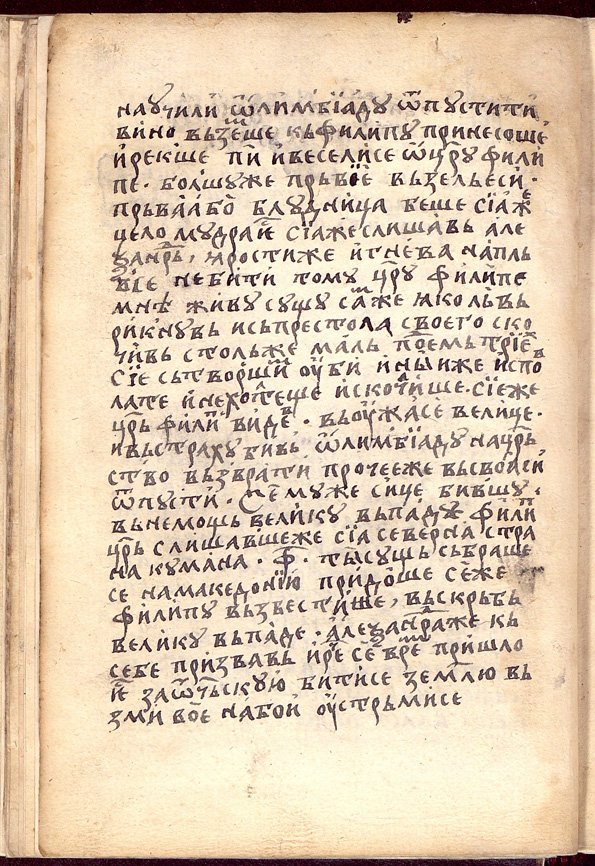 научили ѿлимбїаду ѿпустити
вино възеше къфилипу принесоше
ирекше пїи ивеселисе ѿцр꙯у фили
пе · болшуже прьвїе възельеси ·
прьваабо блудница беше сїаже
цело мудраие сїажеслишавь але
ѯанрь, яростиже игнева напль
вїе небити тому цр꙯у филипе
мнѣ живу сущу саже яко львь
рикнувь исьпрестола своего ско
чивь столже маль поемь трїе
сїе сьтворшїи оуби иниже испо
лате инехотеше искочише · сїеже
цр꙯ь филип виде · въоужасе велице ·
ивьстраху бивь ѿлимбїаду нацр꙯ь
ство възврати прочееже въсвоаси
ѿпусти · Семуже сице бившу ·
вънемощь велику въпаду филип
цр꙯ь слишавшеже сїа северна стра
на кумана · ф꙯ · тысущь събраше
се намакедонїю придоше сеже
филипу възвестише, въскрьбь
велику въпаде · алеѯандраже къ
себе призвавь ире се време пришло
ие заѿчьскую битисе землю въ
зми вое набои оустрьмисе